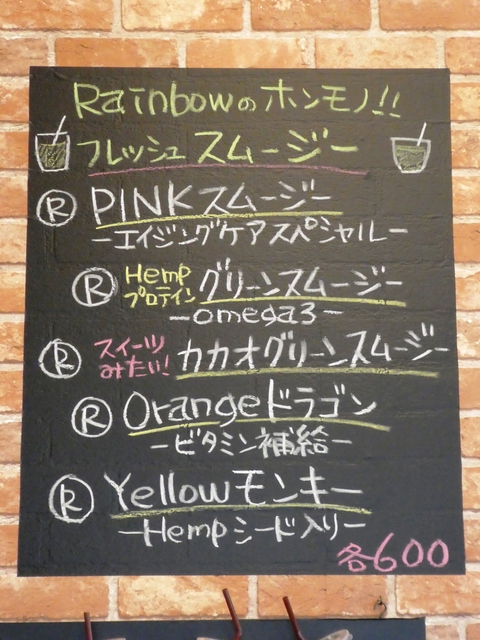 Rainbowのホンモノ!!
フレッシュスムージー
Ⓡ PINKスムージー
ーエイジングケアスペシャルー
Ⓡ Hempプロテイン グリーンスムージー
ーomega3ー
Ⓡ スイーツみたい! カカオグリーンスムージー
Ⓡ Orangeドラゴン
ービタミン補給ー
Ⓡ Yellowモンキー
ーHempシード入りー
各600